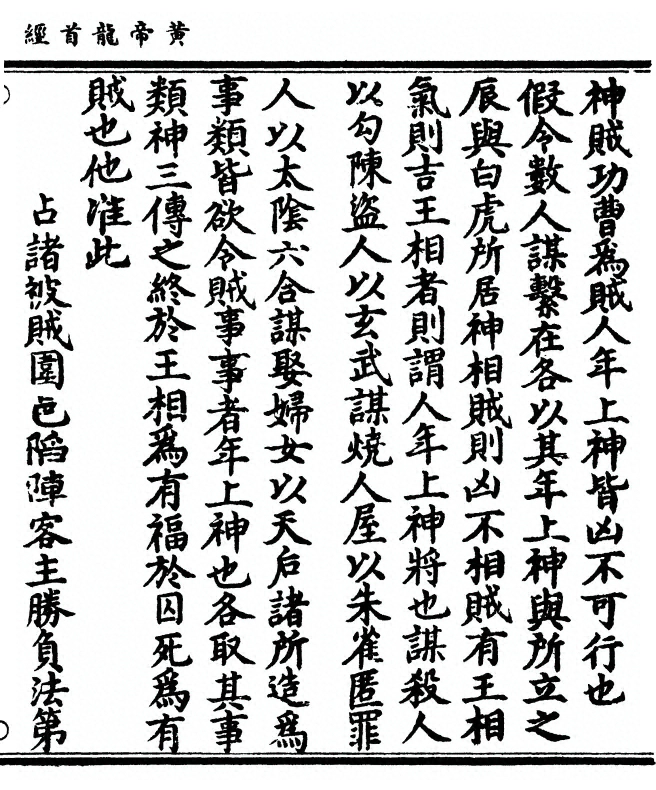 黃帝龍首經
神賊功曹爲賊人年上神皆凶不可行也
假令數人謀繫在各以其年上神與所立之
辰與白虎所居神相賊則凶不相賊有王相
氣則吉王相者則謂人年上神將也謀殺人
以勾陳盜人以玄武謀燒人屋以朱雀匿罪
人以太陰六合謀娶婦女以天后諸所造爲
事類皆欲令賊事事者年上神也各取其事
類神三傳之終於王相爲有福於囚死爲有
賊也他准此
占諸被賊圍邑陷陣客主勝負法第